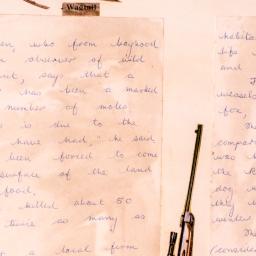 Wagtail
en, who from boyhood
n observer of wild
says that a
has been a marked
number of moles
is due to the
have had," he said
been forced to come
surface of the land
food.
killed about 50
twice as many as
a local firm
habita
life
and
weasels
fox,
The
compar
was
the
dog
they
winter
The
(consider